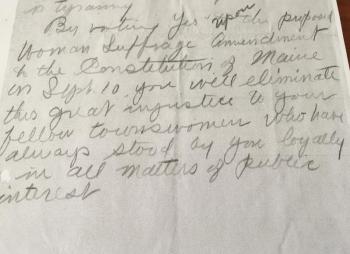 is tyranny
By voting Yes upon the proposed
Woman Suffrage Amendment
to the Constitution of Maine
on Sept. 10 you will eliminate
this great injustice to your
fellow townswomen who have
always stood by you loyally
in all matters of public
interest